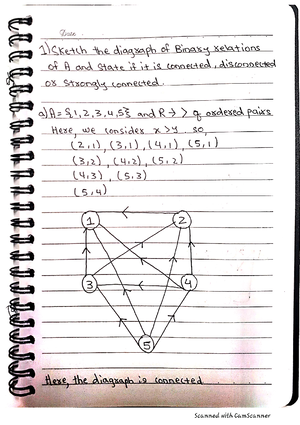 1) Sketch the diagraph of Binary relations
of A and State if it is connected, disconnected
or strongly connected.
a) A = {1, 2, 3, 4, 5} and R → > of ordered pairs
Here, we consider x > y so,
(2,1), (3,1), (4,1), (5,1)
(3,2), (4,2), (5,2)
(4,3), (5,3)
(5,4)
1 2
3 4
5
Here, the diagraph is connected
Scanned with CamScanner